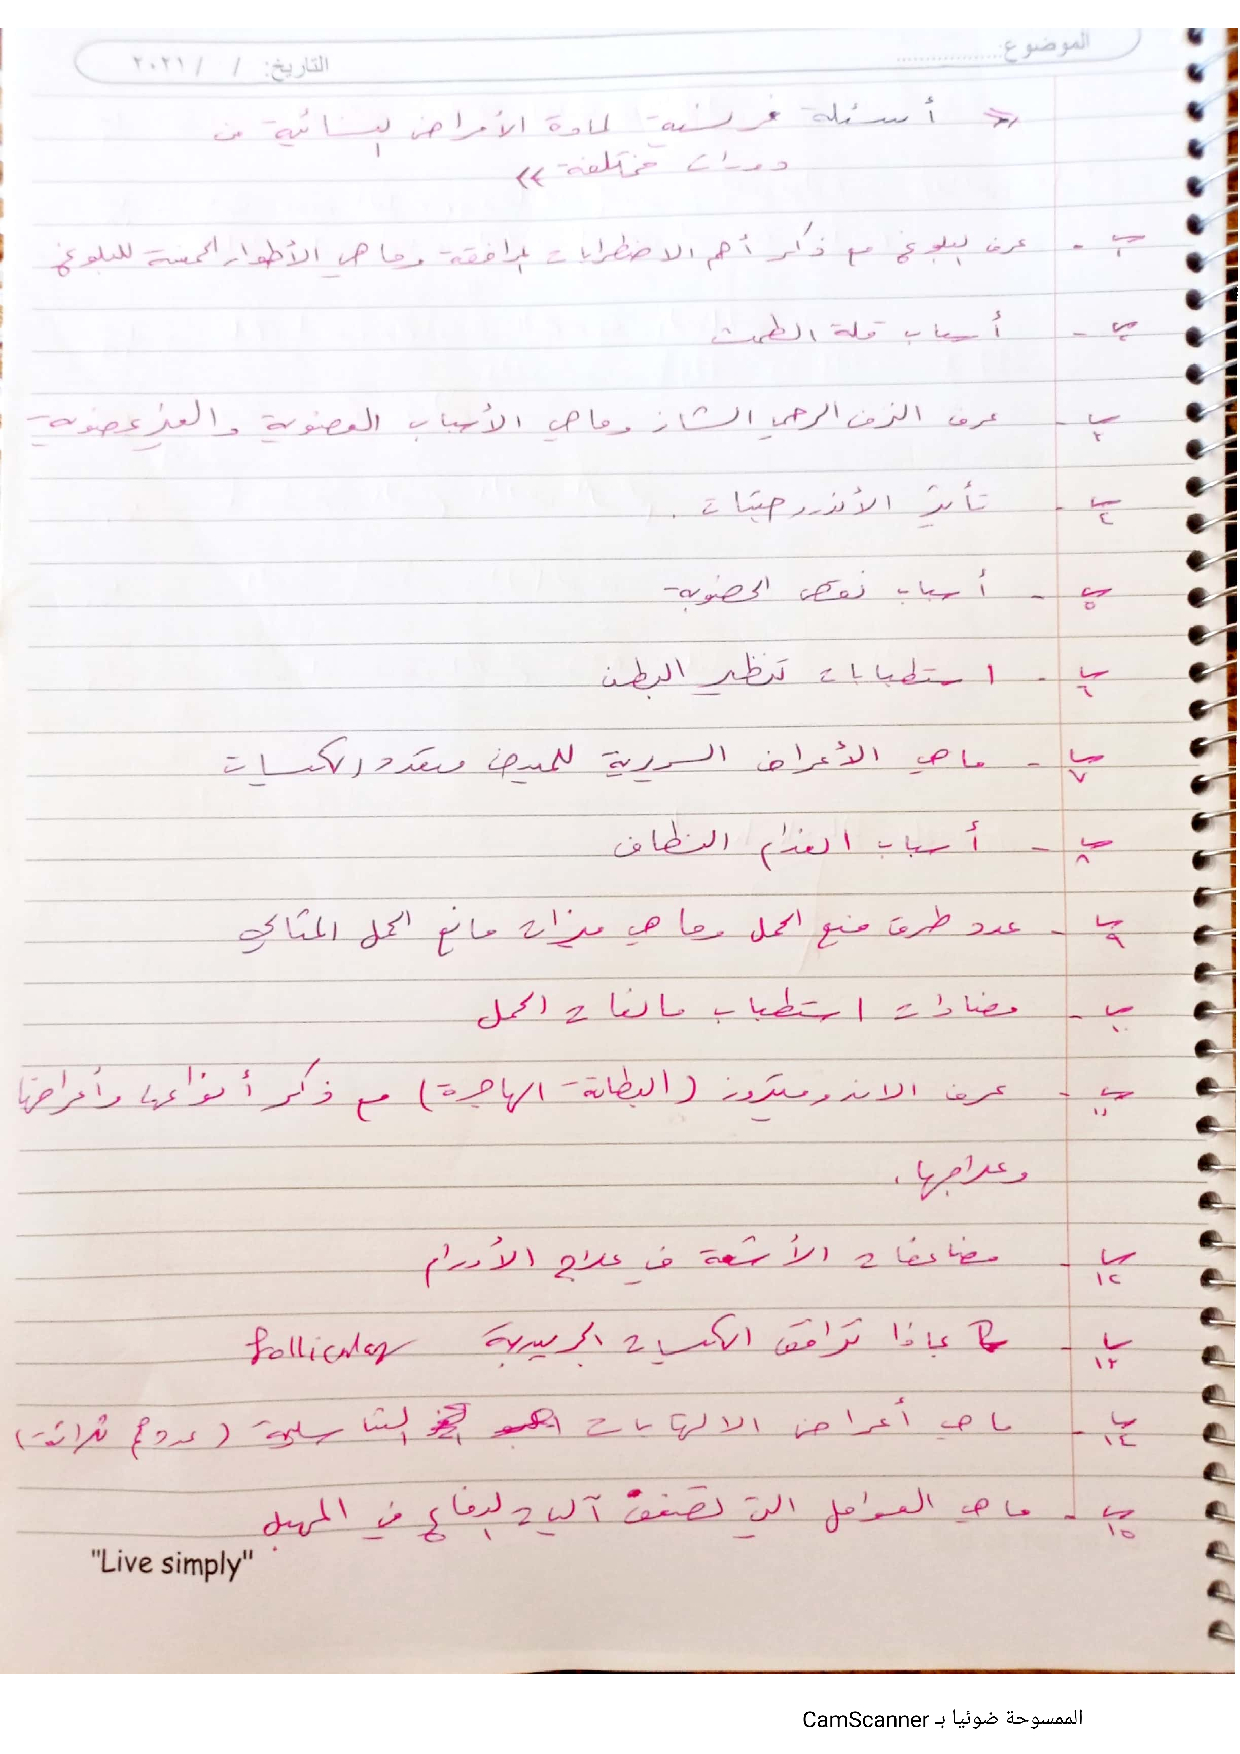 الموضوع:
التاريخ: / / ٢٠٢١
>> أسئلة فرنسية لمادة الأمراض النسائية من
دورات مختلفة <<
س١ - عرف البلوغ مع ذكر أهم الاضطرابات المرافقة وما هي الأطوار الخمسة للبلوغ
س٢ - أسباب قلة الطمث
س٣ - عرف النزف الرحمي الشاذ وما هي الأسباب العضوية والغير عضوية
س٤ - تأثير الأندروجينات .
س٥ - أسباب نقص الخصوبة
س٦ - استطبابات تنظير البطن
س٧ - ما هي الأعراض السريرية للمبيض متعدد الكيسات
س٨ - أسباب انعدام النطاف
س٩ - عدد طرق منع الحمل وما هي ميزات مانع الحمل المثالي
س١٠ - مضادات استطباب مانعات الحمل
س١١ - عرف الاندوميتروز (البطانة الهاجرة) مع ذكر أنواعها وأعراضها
وعلاجها .
س١٢ - مضاعفات الأشعة في علاج الأورام
س١٣ - بماذا ترافق الكيسات الجريبية follicular
س١٤ - ما هي أعراض الالتهابات التناسلية (عددي ثلاثة)
س١٥ - ما هي العوامل التي تضعف آليات الدفاع في المهبل
"Live simply"
الممسوحة ضوئيا بـ CamScanner